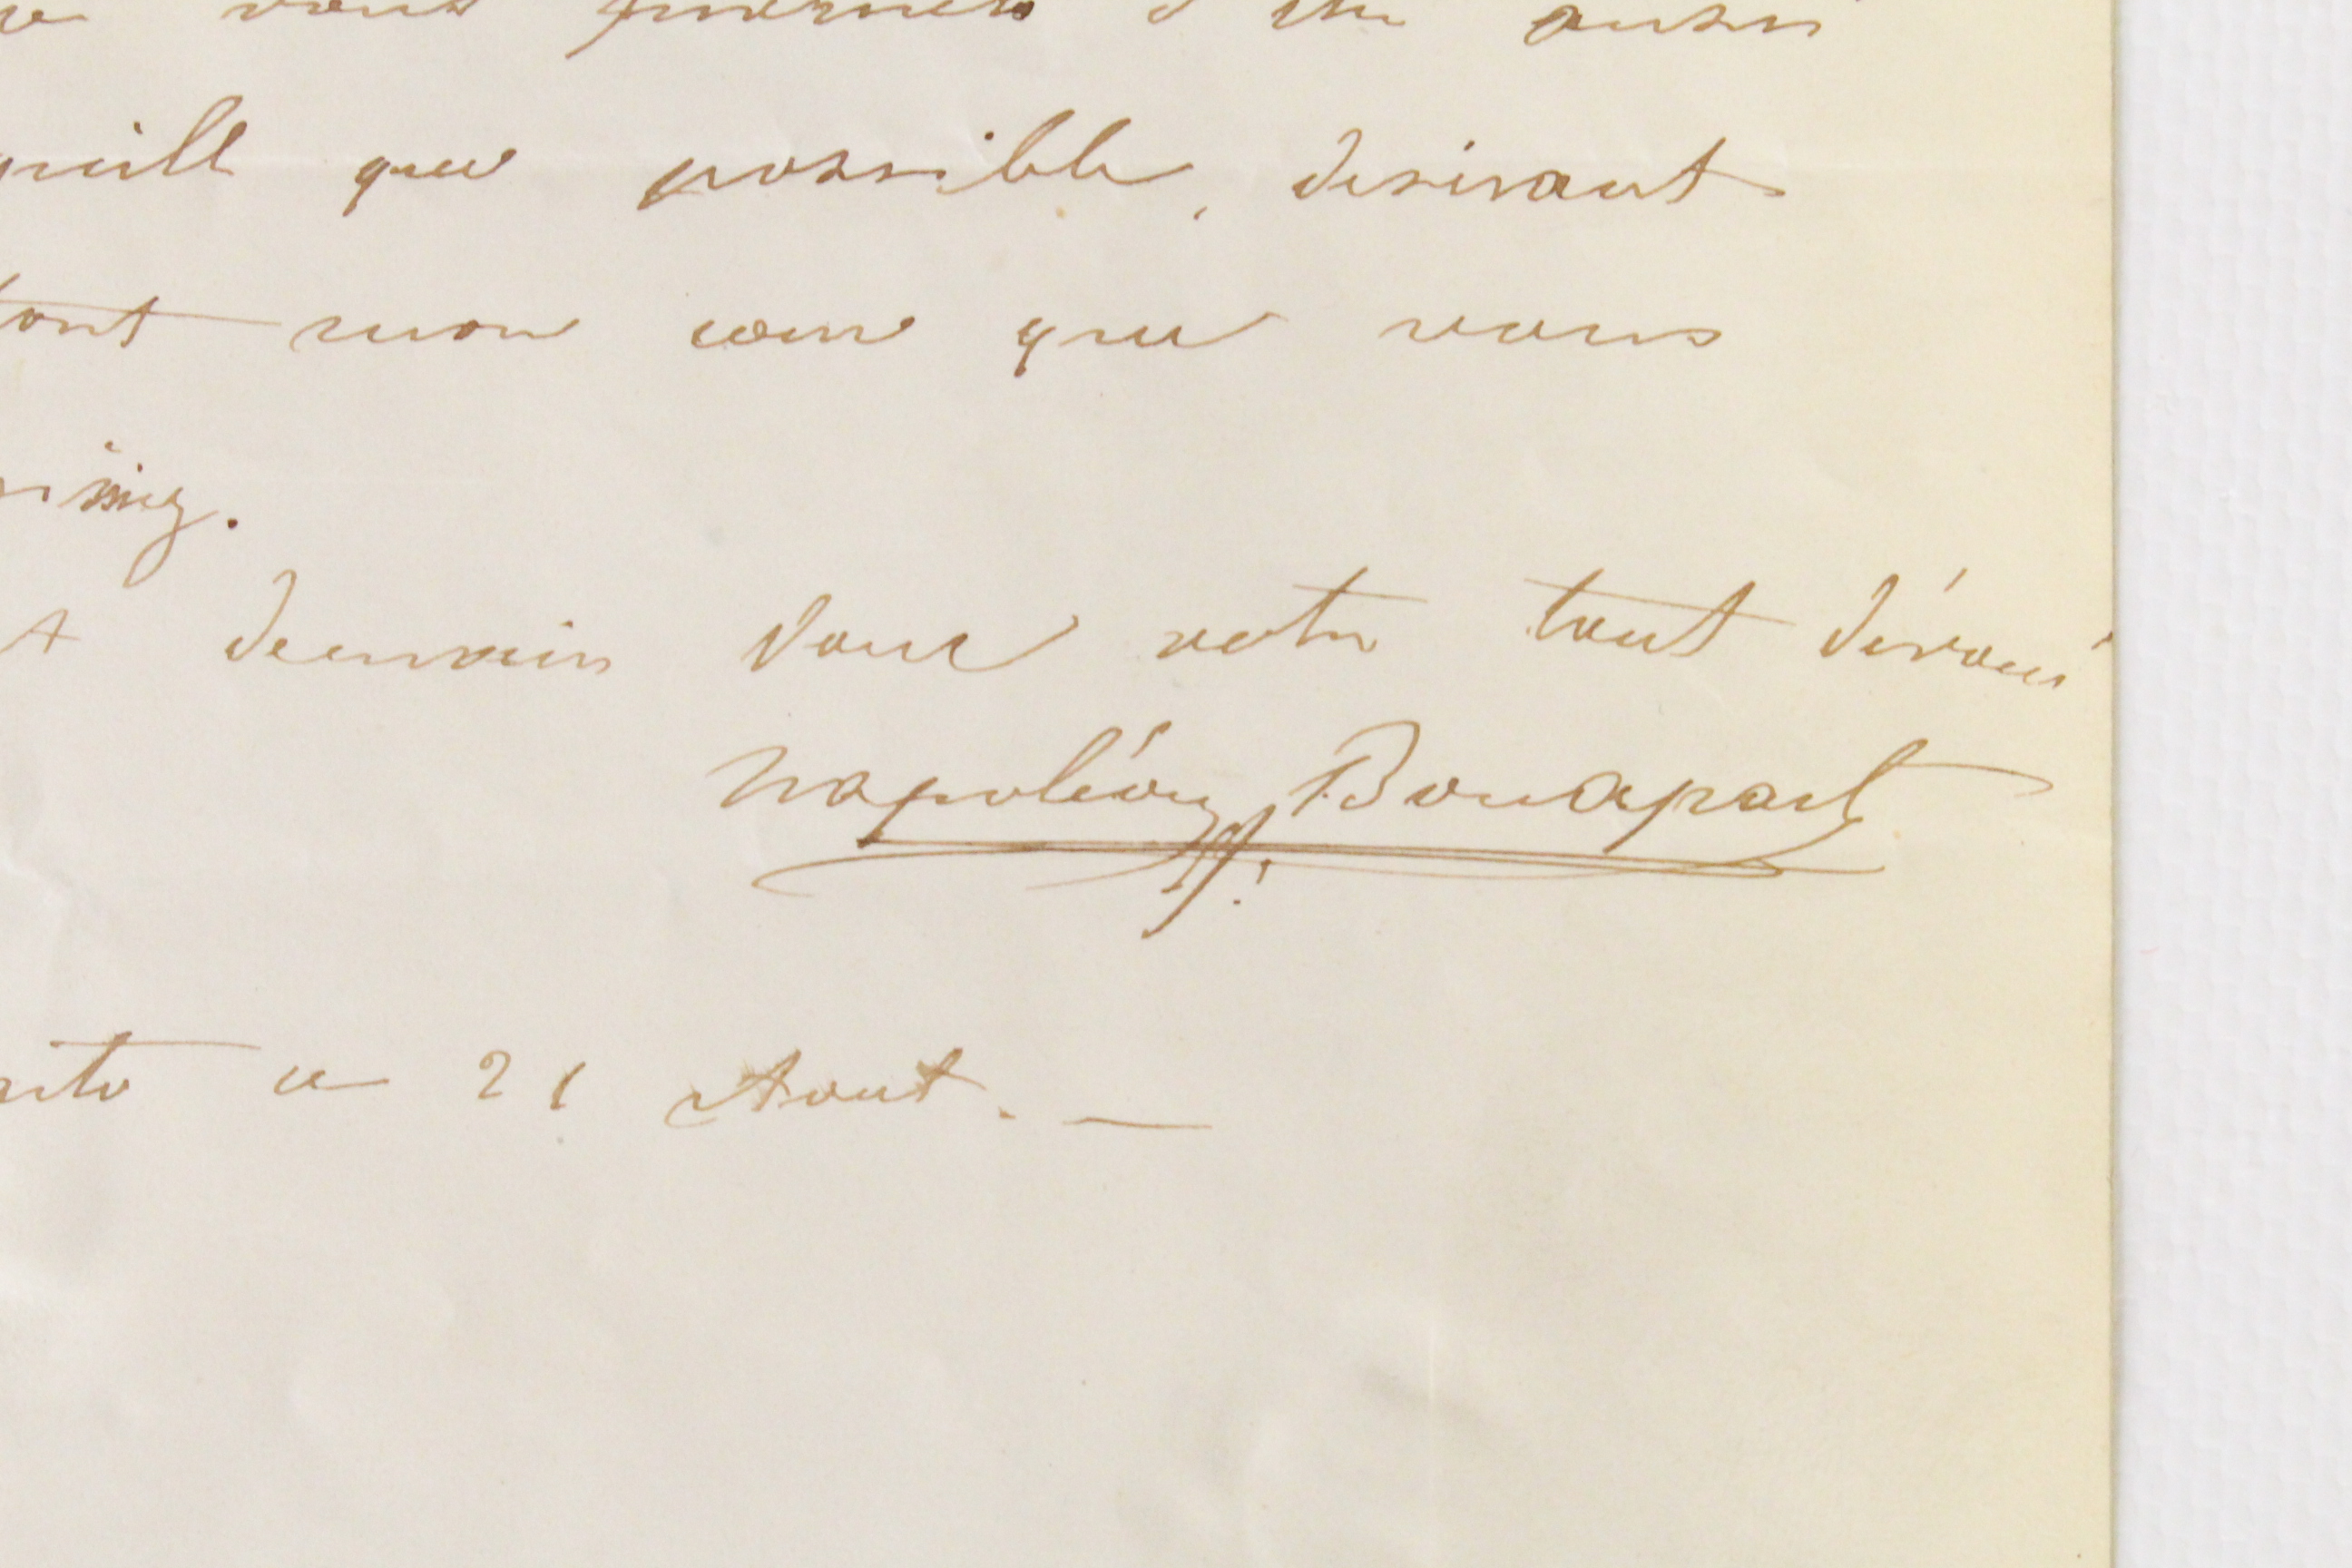 vous permets d'être aussi
que possible, desirant
tout mon cœur que vous

A demain donc votre tout dévoué
Napoléon Bonaparte
ce 21 Aout. —